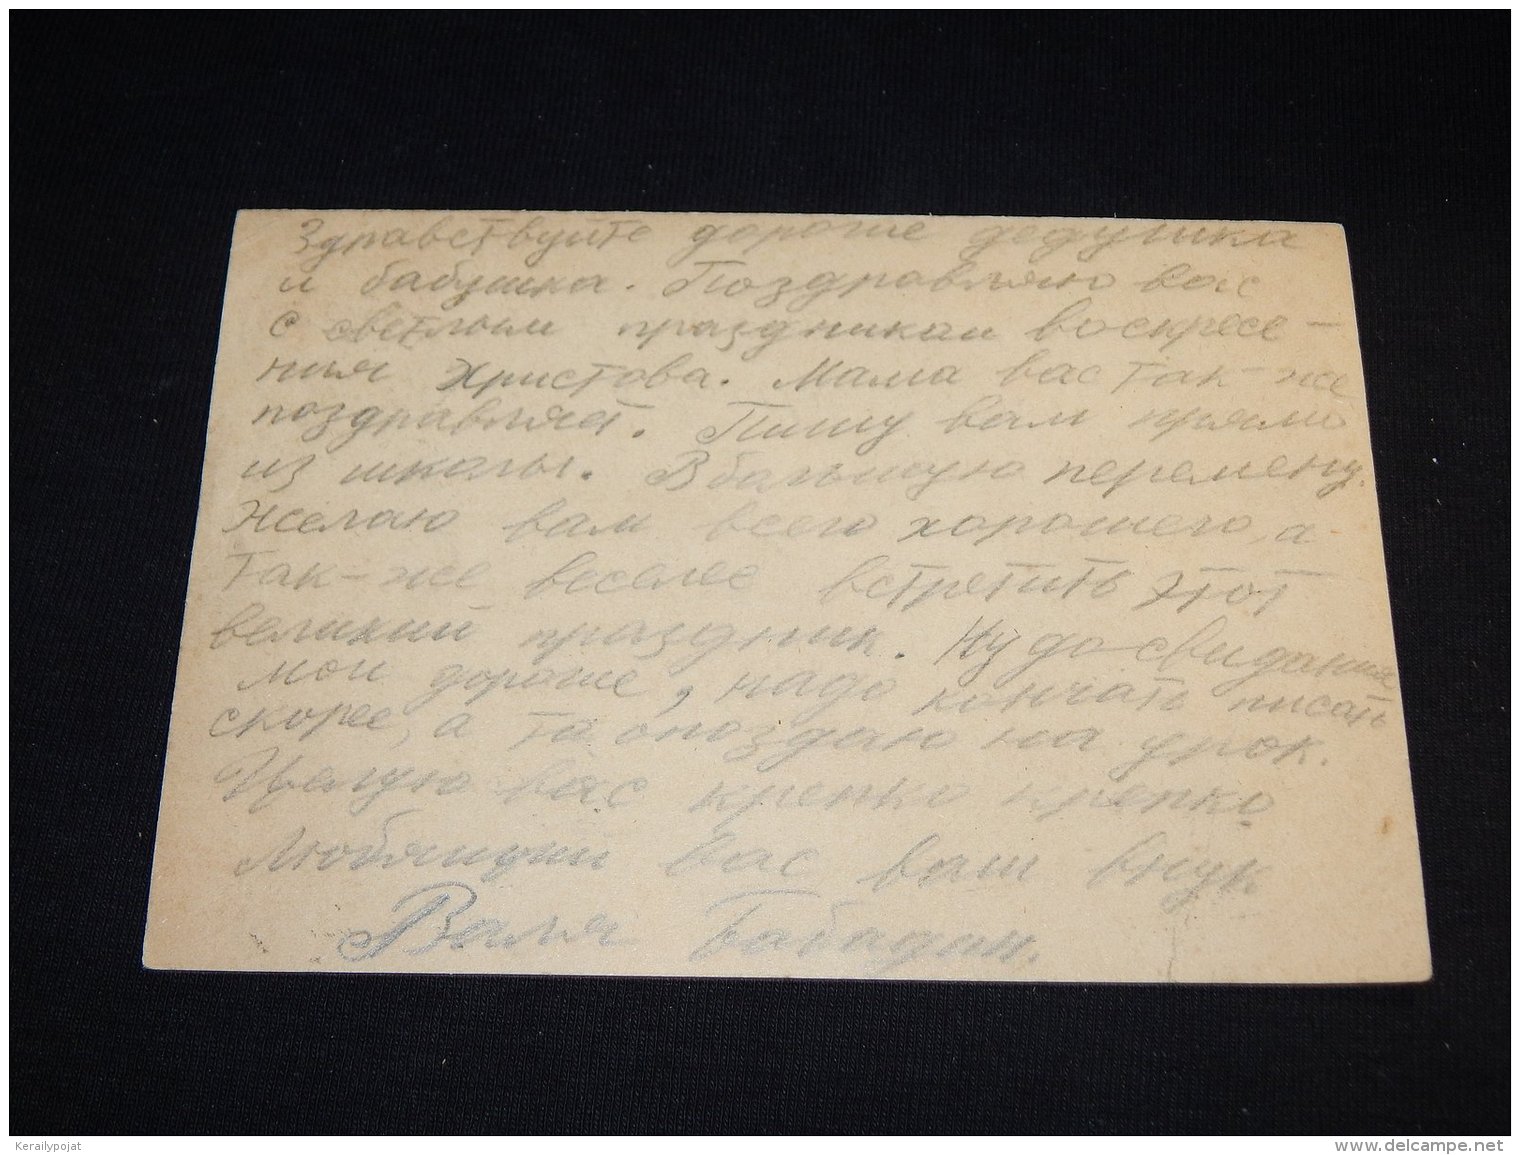 Здравствуйте дорогие дедушка
и бабушка. Поздравляю вас
с светлым праздником воскресе-
ния Христова. Мама вас так-же
поздравляет. Пишу вам прямо
из школы. В большую перемену.
Желаю вам всего хорошего, а
так-же веселее встретить этот
великий праздник. Ну досвидание
мои дорогие, надо кончать писать
скорее, а то опоздаю на урок.
Целую вас крепко крепко.
Любящий вас ваш внук
Валя Бабадан.
Kerailypojat
www.delcampe.net